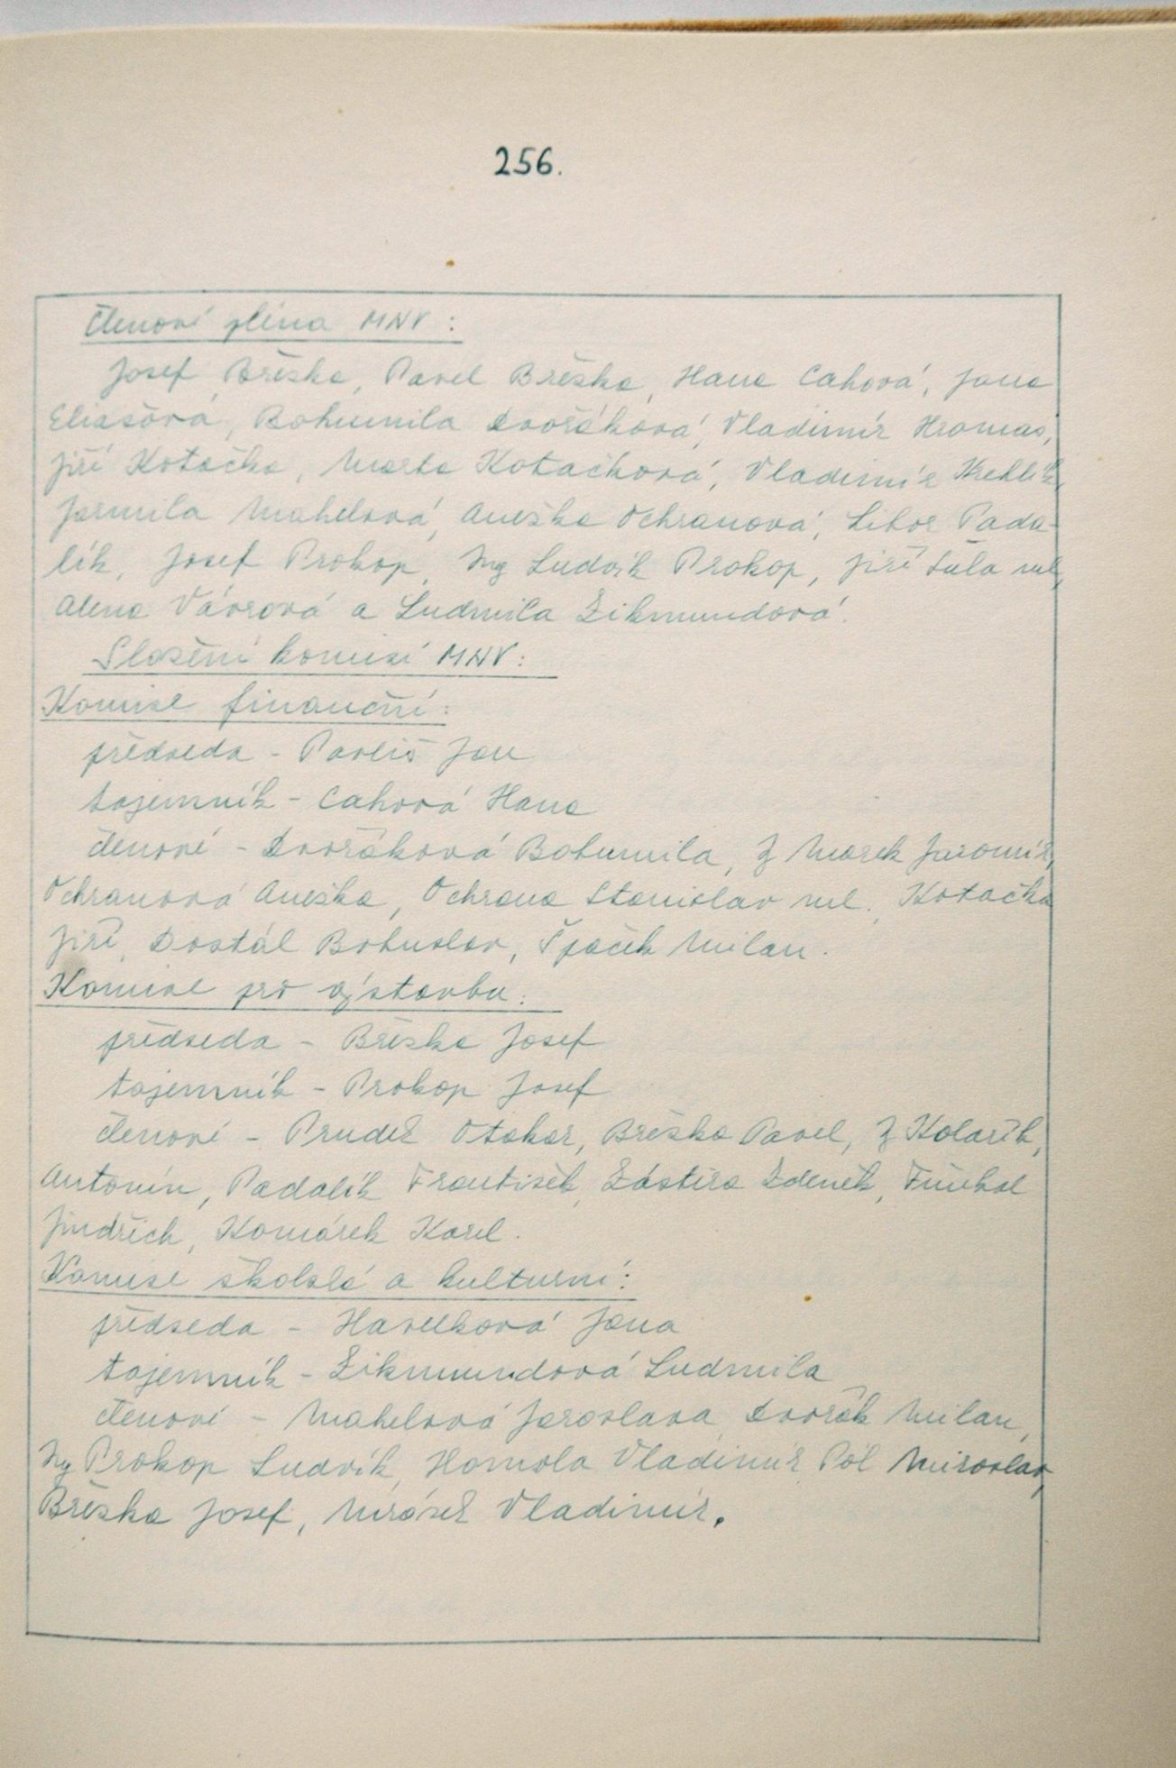 256.
Členové pléna MNV :
Josef Břeska, Pavel Břeska, Hana Cahová, Jana
Eliašová, Bohumila Dvořáková, Vladimír Hromas,
Jiří Kotačka, Marta Kotačková, Vladimír
Jarmila Mahelová, Anežka Ochranová, Libor Pada-
lík, Josef Prokop, Ing Ludvík Prokop, Jiří Šula ml,
Alena Vávrová a Ludmila Zikmundová.
Složení komisí MNV :
Komise finanční :
předseda - Pavliš Jan
tajemník - Cahová Hana
členové - Dvořáková Bohumila, Marek Jaromír,
Ochranová Anežka, Ochrana Stanislav ml., Kotačka
Jiří, Dostál Bohuslav, Špaček Milan.
Komise pro výstavbu :
předseda - Břeska Josef
tajemník - Prokop Josef
členové - Otakar, Břeska Pavel, Kolařík,
Antonín, Padalík František, Zástěra Zdeněk,
Jindřich, Komárek Karel.
Komise školská a kulturní :
předseda - Havelková Jana
tajemník - Zikmundová Ludmila
členové - Mahelová Jaroslava, Dvořák Milan,
Ing Prokop Ludvík, Homola Vladimír, Pól Miroslav,
Břeska Josef, Mrázek Vladimír.